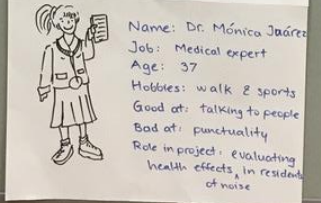 Name: Dr. Mónica Juárez
Job: Medical expert
Age: 37
Hobbies: walk & sports
Good at: talking to people
Bad at: punctuality
Role in project: evaluating
health effects in residents
of noise